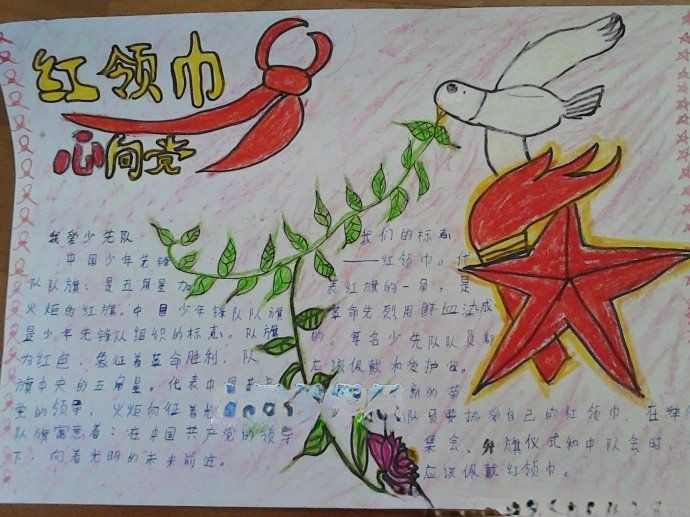 红领巾
心向党
我爱少先队
中国少年先锋
队队旗：是五角星加
火炬的红旗.中国少年先锋队队旗
是少年先锋队组织的标志。队旗
为红色，象征着革命胜利，队
旗中央的五角星。代表中国
党的领导，火炬向征着光
队旗寓意着：在中国共产党的领导
下，向着光明的未来前进。
我们的标志
——红领巾。代
表红旗的一角，是
革命先烈用鲜血染成
的。每名少先队员都
应该佩戴和爱护它。
队员要热爱自己的红领巾，在举
集会、升旗仪式和中队会时，
应该佩戴红领巾。